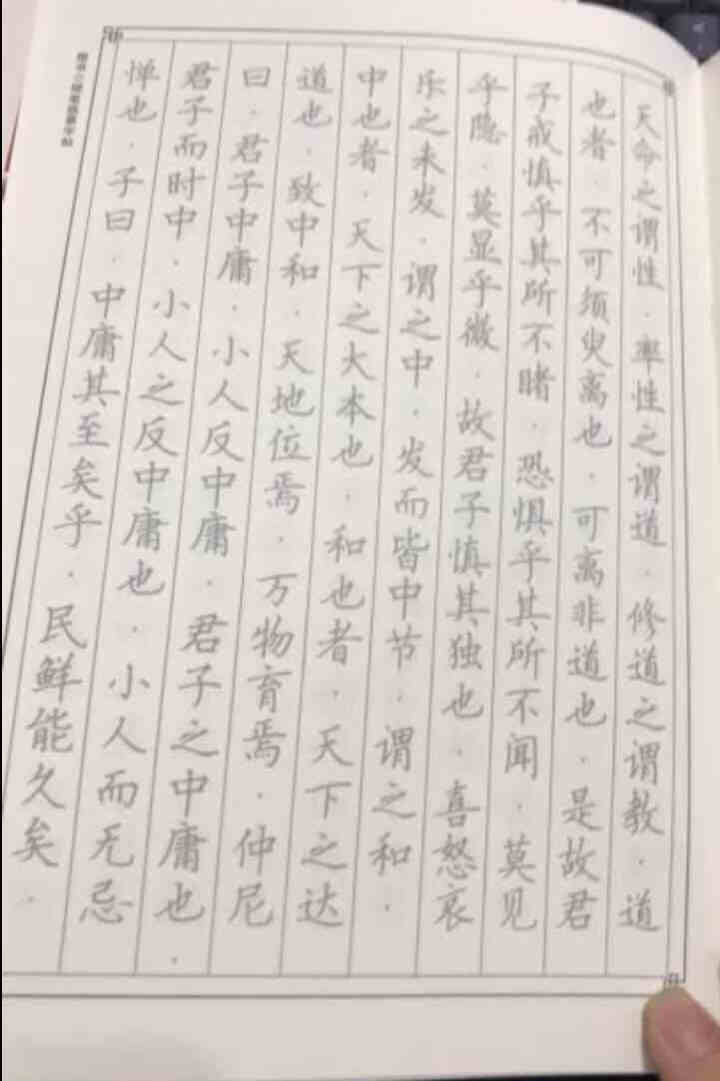 天命之谓性．率性之谓道．修道之谓教．道
也者．不可须臾离也．可离非道也．是故君
子戒慎乎其所不睹．恐惧乎其所不闻．莫见
乎隐．莫显乎微．故君子慎其独也．喜怒哀
乐之未发．谓之中．发而皆中节．谓之和．
中也者．天下之大本也．和也者．天下之达
道也．致中和．天地位焉．万物育焉．仲尼
曰．君子中庸．小人反中庸．君子之中庸也．
君子而时中．小人之反中庸也．小人而无忌
惮也．子曰．中庸其至矣乎．民鲜能久矣．